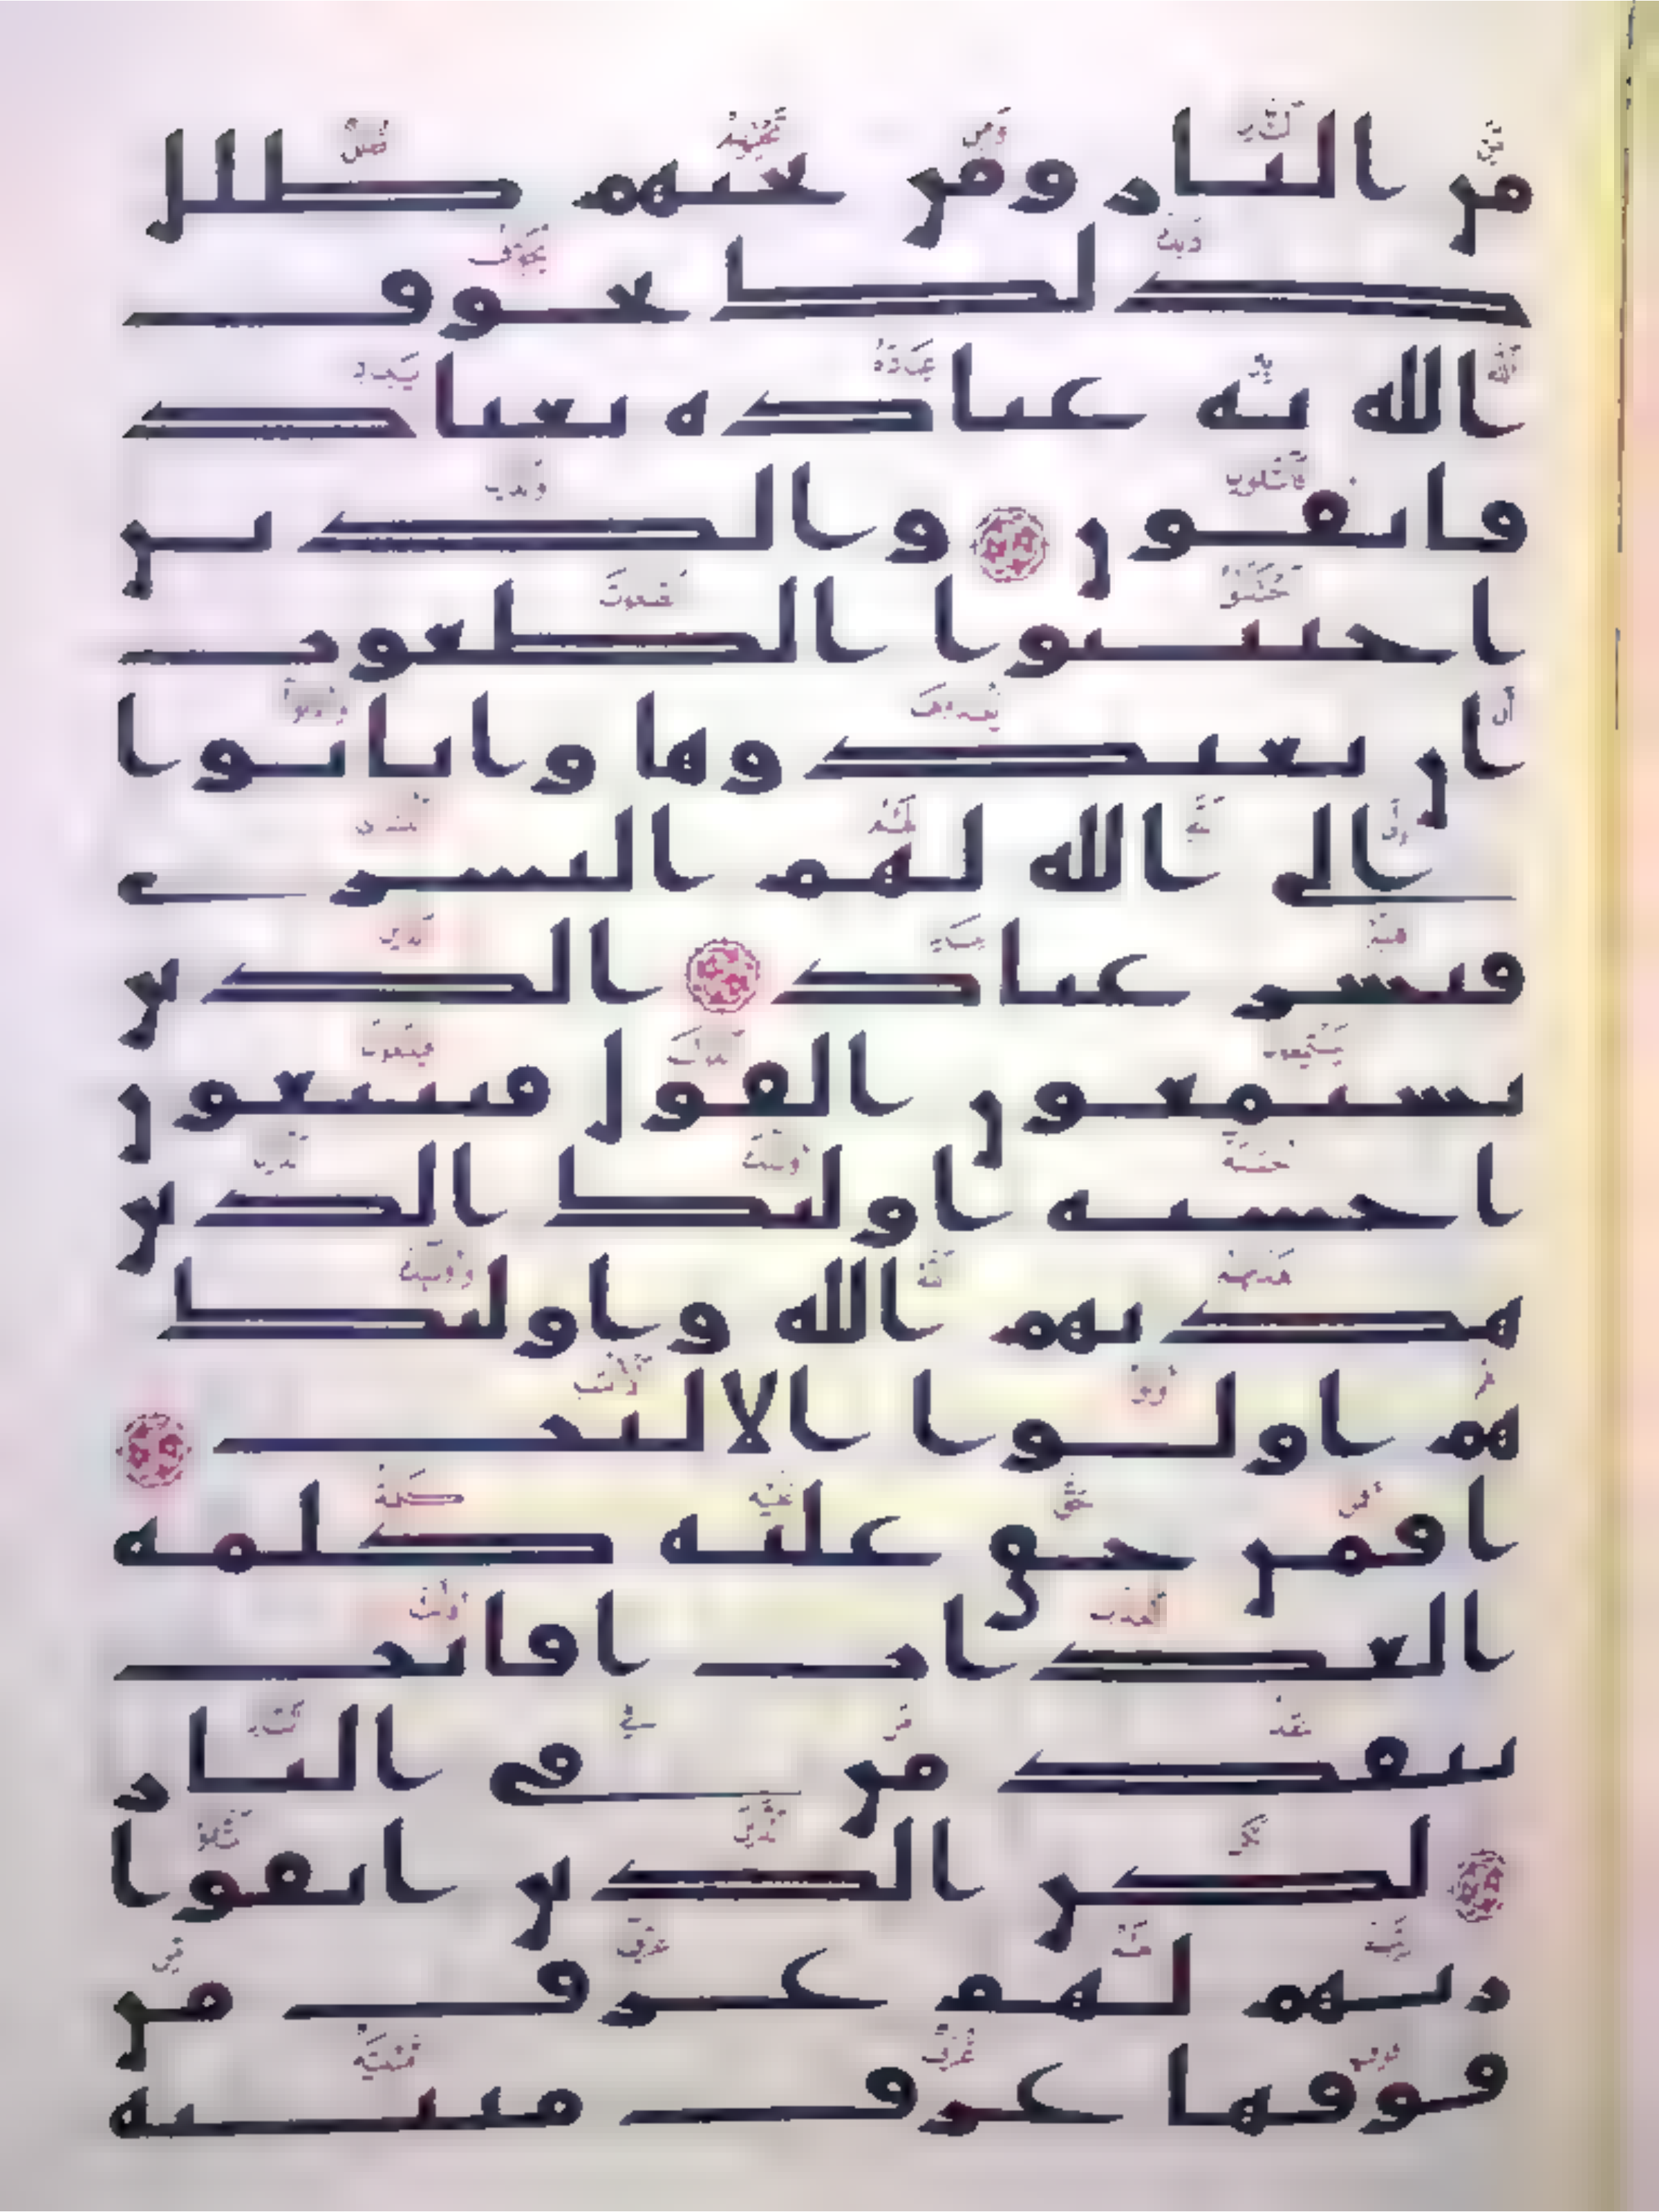 من النار ومن تحتهم ظلل
ذلك يخوف
الله به عباده يعباد
فاتقون والذين
اجتنبوا الطغوت
ان يعبدوها وانابوا
الى الله لهم البشرى
فبشر عباد الذين
يستمعون القول فيتبعون
احسنه اولئك الذين
هديهم الله واولئك
هم اولوا الالبب
افمن حق عليه كلمه
العذاب افانت
تنقذ من في النار
لكن الذين اتقوا
ربهم لهم غرف من
فوقها غرف مبنيه